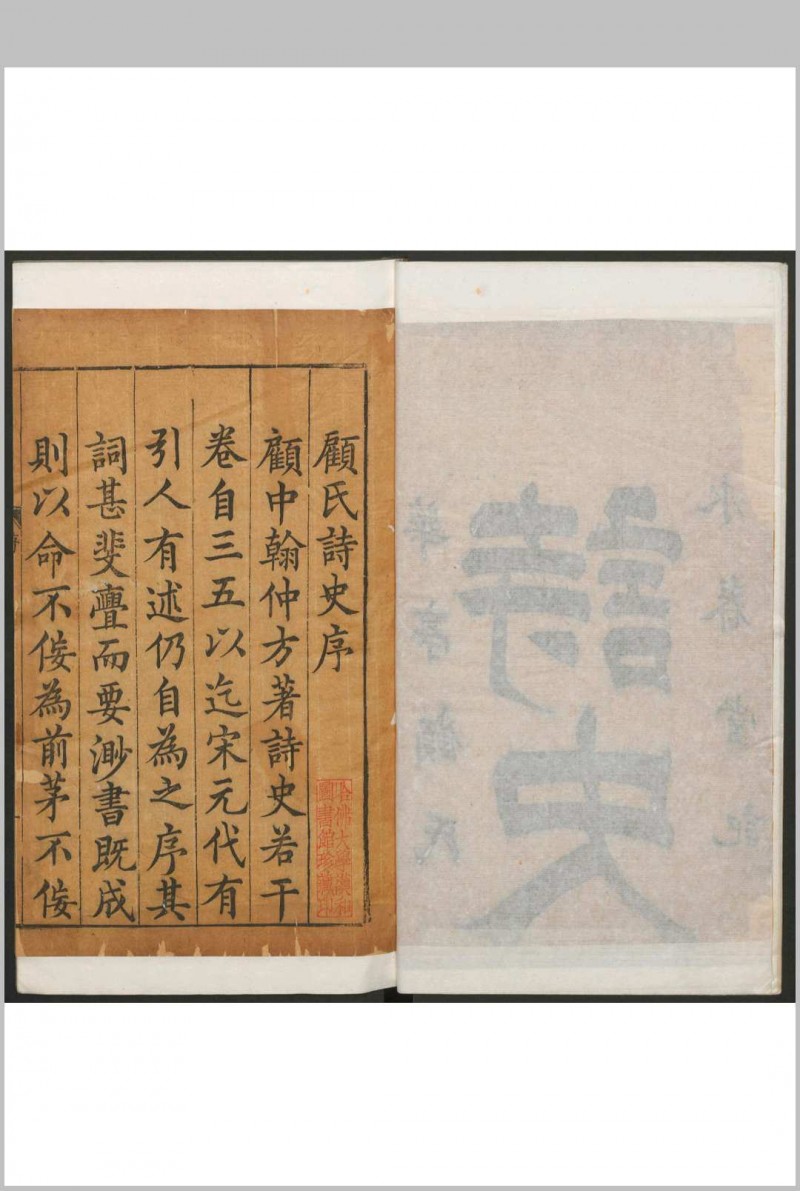 華亭顧氏
詩史
顧氏詩史序
顧中翰仲方著詩史若干
卷自三五以迄宋元代有
引人有述仍自為之序其
詞甚斐亹而要渺書既成
則以命不佞為前茅不佞
哈佛大學漢和
圖書館珍藏印